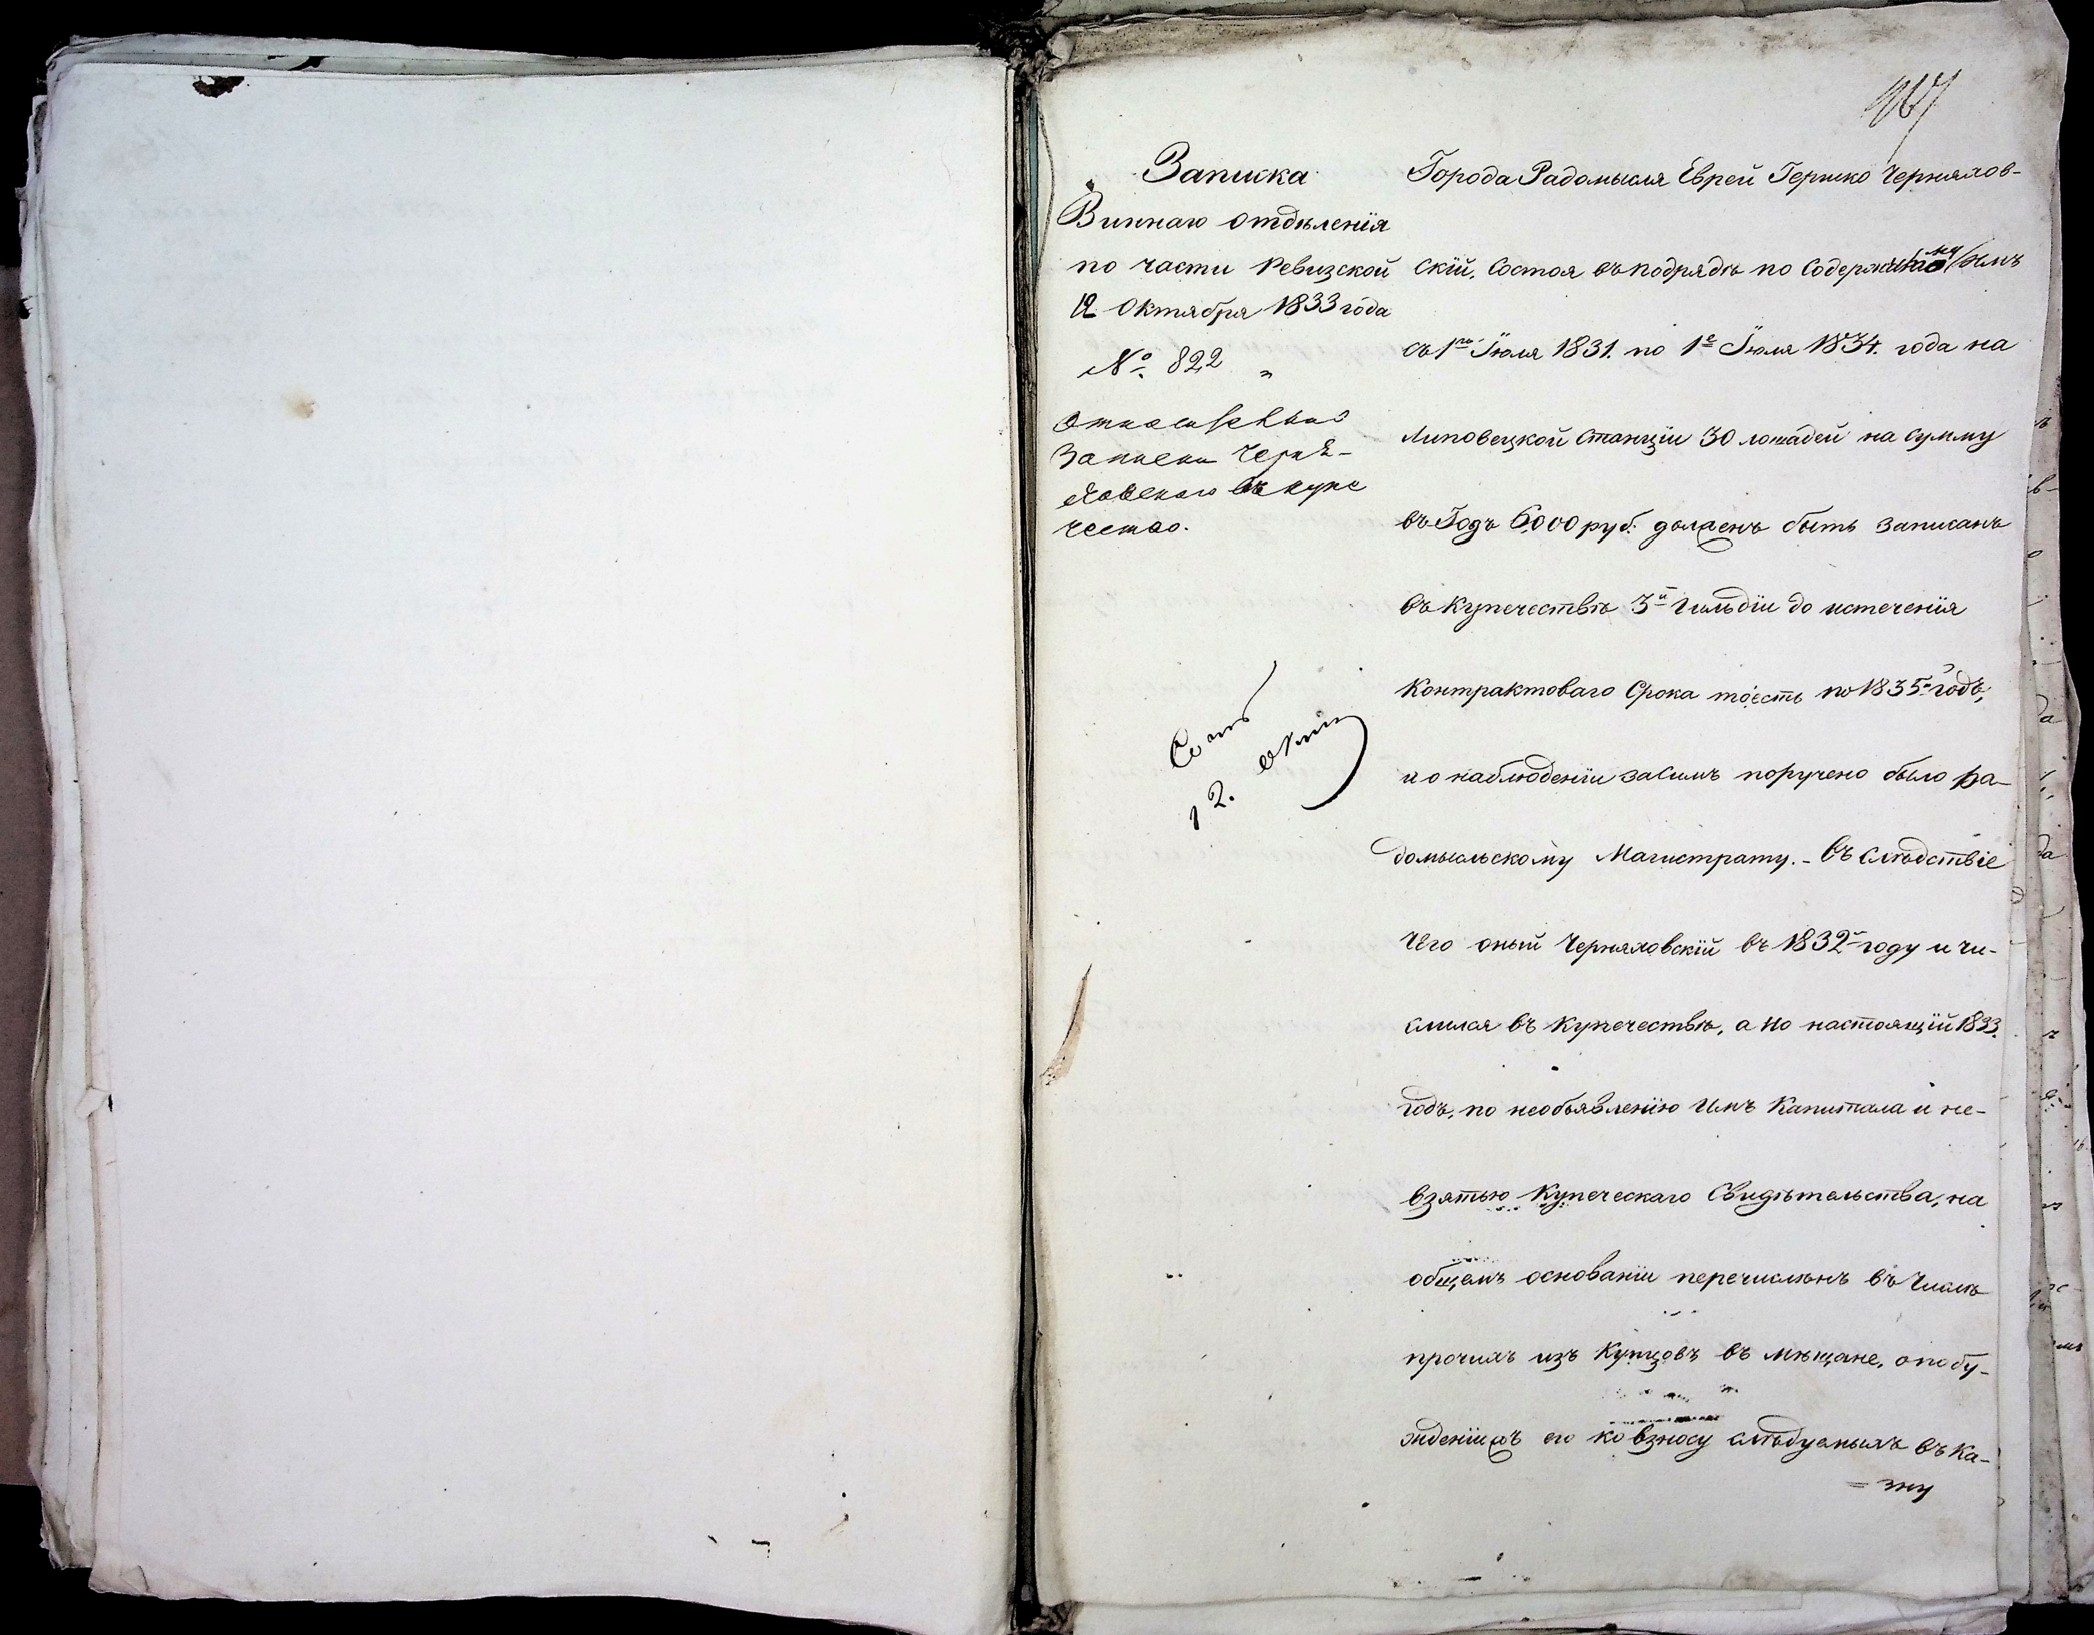 Записка
Виннаго отдѣленія
по части Ревизской
12 Октября 1833 года
№ 822
относительно
Записки Черня-
ховскаго въ купе
чество.
12.
Города Радомысля Еврей Гершко Черняхов-
скій, состоя въ подрядѣ по содержанію имъ
съ 1го Іюля 1831. по 1е Іюля 1834. года на
Липовецкой станціи 30 лошадей на сумму
въ Годъ 6000 руб: долженъ быть записанъ
въ купечествѣ 3й гильдіи до истеченія
Контрактоваго Срока тоесть по 1835й годъ,
и о наблюденіи засимъ поручено было Ра-
домысльскому Магистрату. - въ слѣдствіе
чего оный Черняховскій въ 1832м году и чи-
слился въ купечествѣ, а по настоящій 1833.
годъ, по необъявленію имъ Капитала и не-
взятью Купеческаго Свидѣтельства, на
общемъ основаніи перечисленъ въ числѣ
прочихъ изъ Купцовъ въ мѣщане, о побу-
жденіи его ко взносу слѣдуемыхъ въ Ка-
= зну